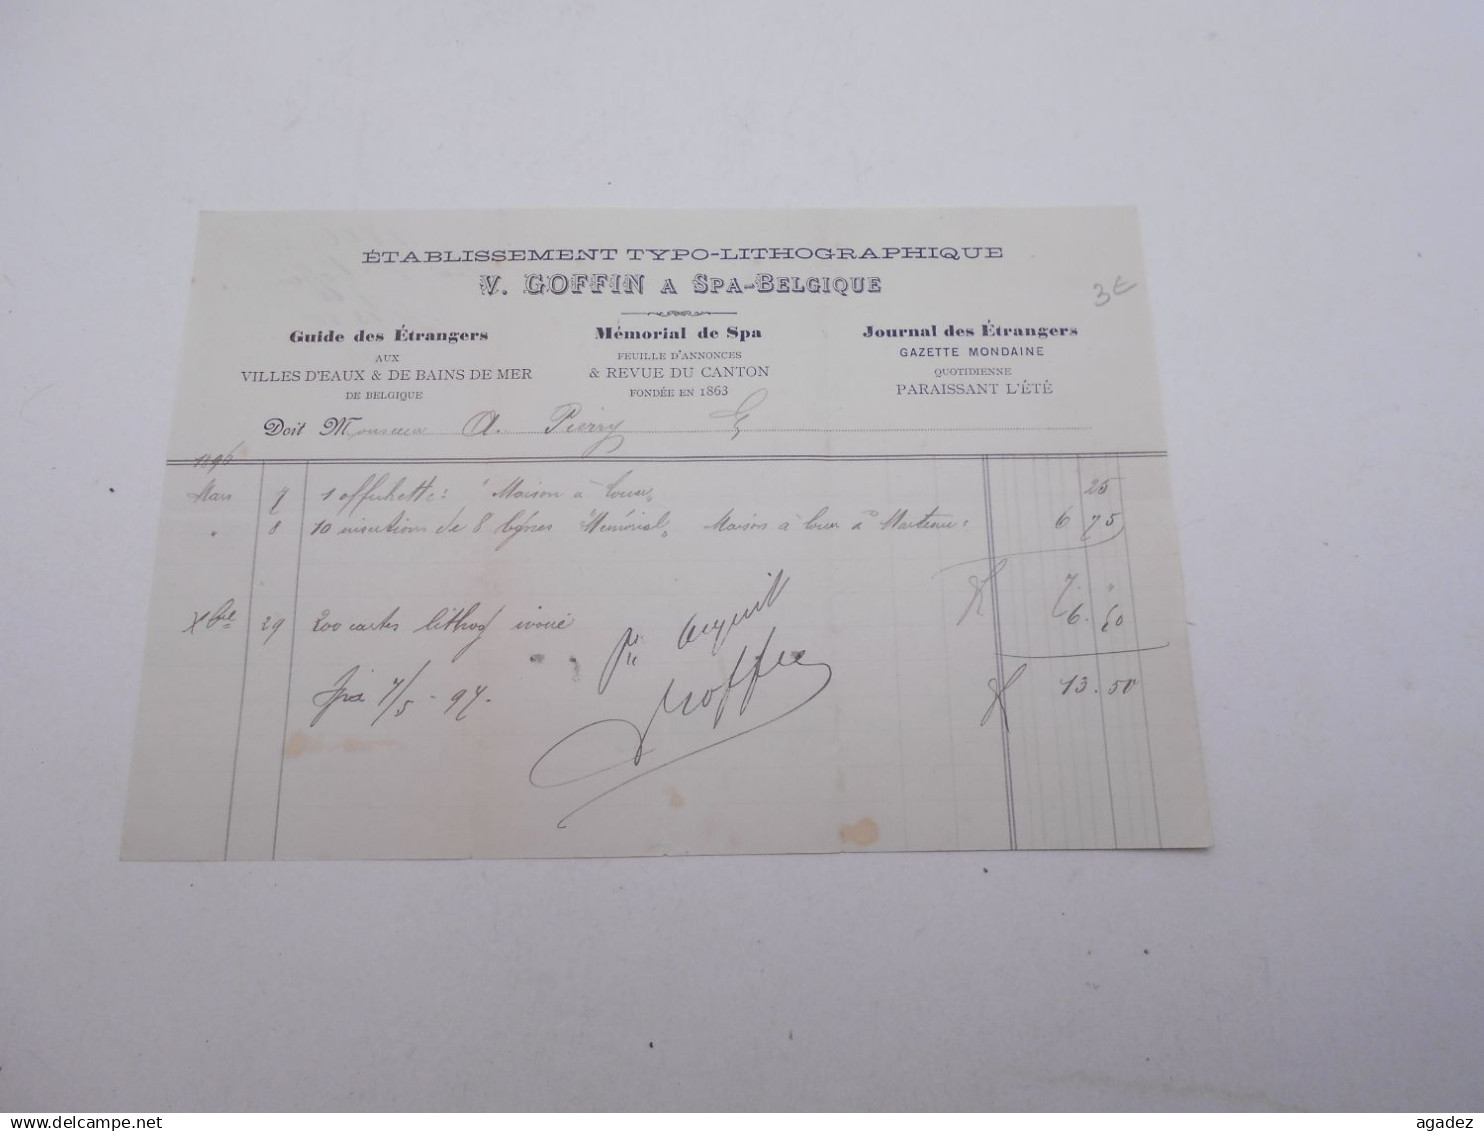 ÉTABLISSEMENT TYPO-LITHOGRAPHIQUE
V. GOFFIN A SPA-BELGIQUE
3€
Guide des Étrangers
AUX
VILLES D'EAUX & DE BAINS DE MER
DE BELGIQUE
Mémorial de Spa
FEUILLE D'ANNONCES
& REVUE DU CANTON
FONDÉE EN 1863
Journal des Étrangers
GAZETTE MONDAINE
QUOTIDIENNE
PARAISSANT L'ÉTÉ
Doit Monsieur A. Pierry
1896
Mars 7 1 affichette: "Maison à louer" 25
" 8 10 insertions de 8 lignes "Mémorial" Maison à louer à 6 75
7. "
Xbre 29 200 cartes lithog ivoire 6.50
Spa 7/5-97. 13.50
Pr acquit
Goffin
agadez
www.delcampe.net